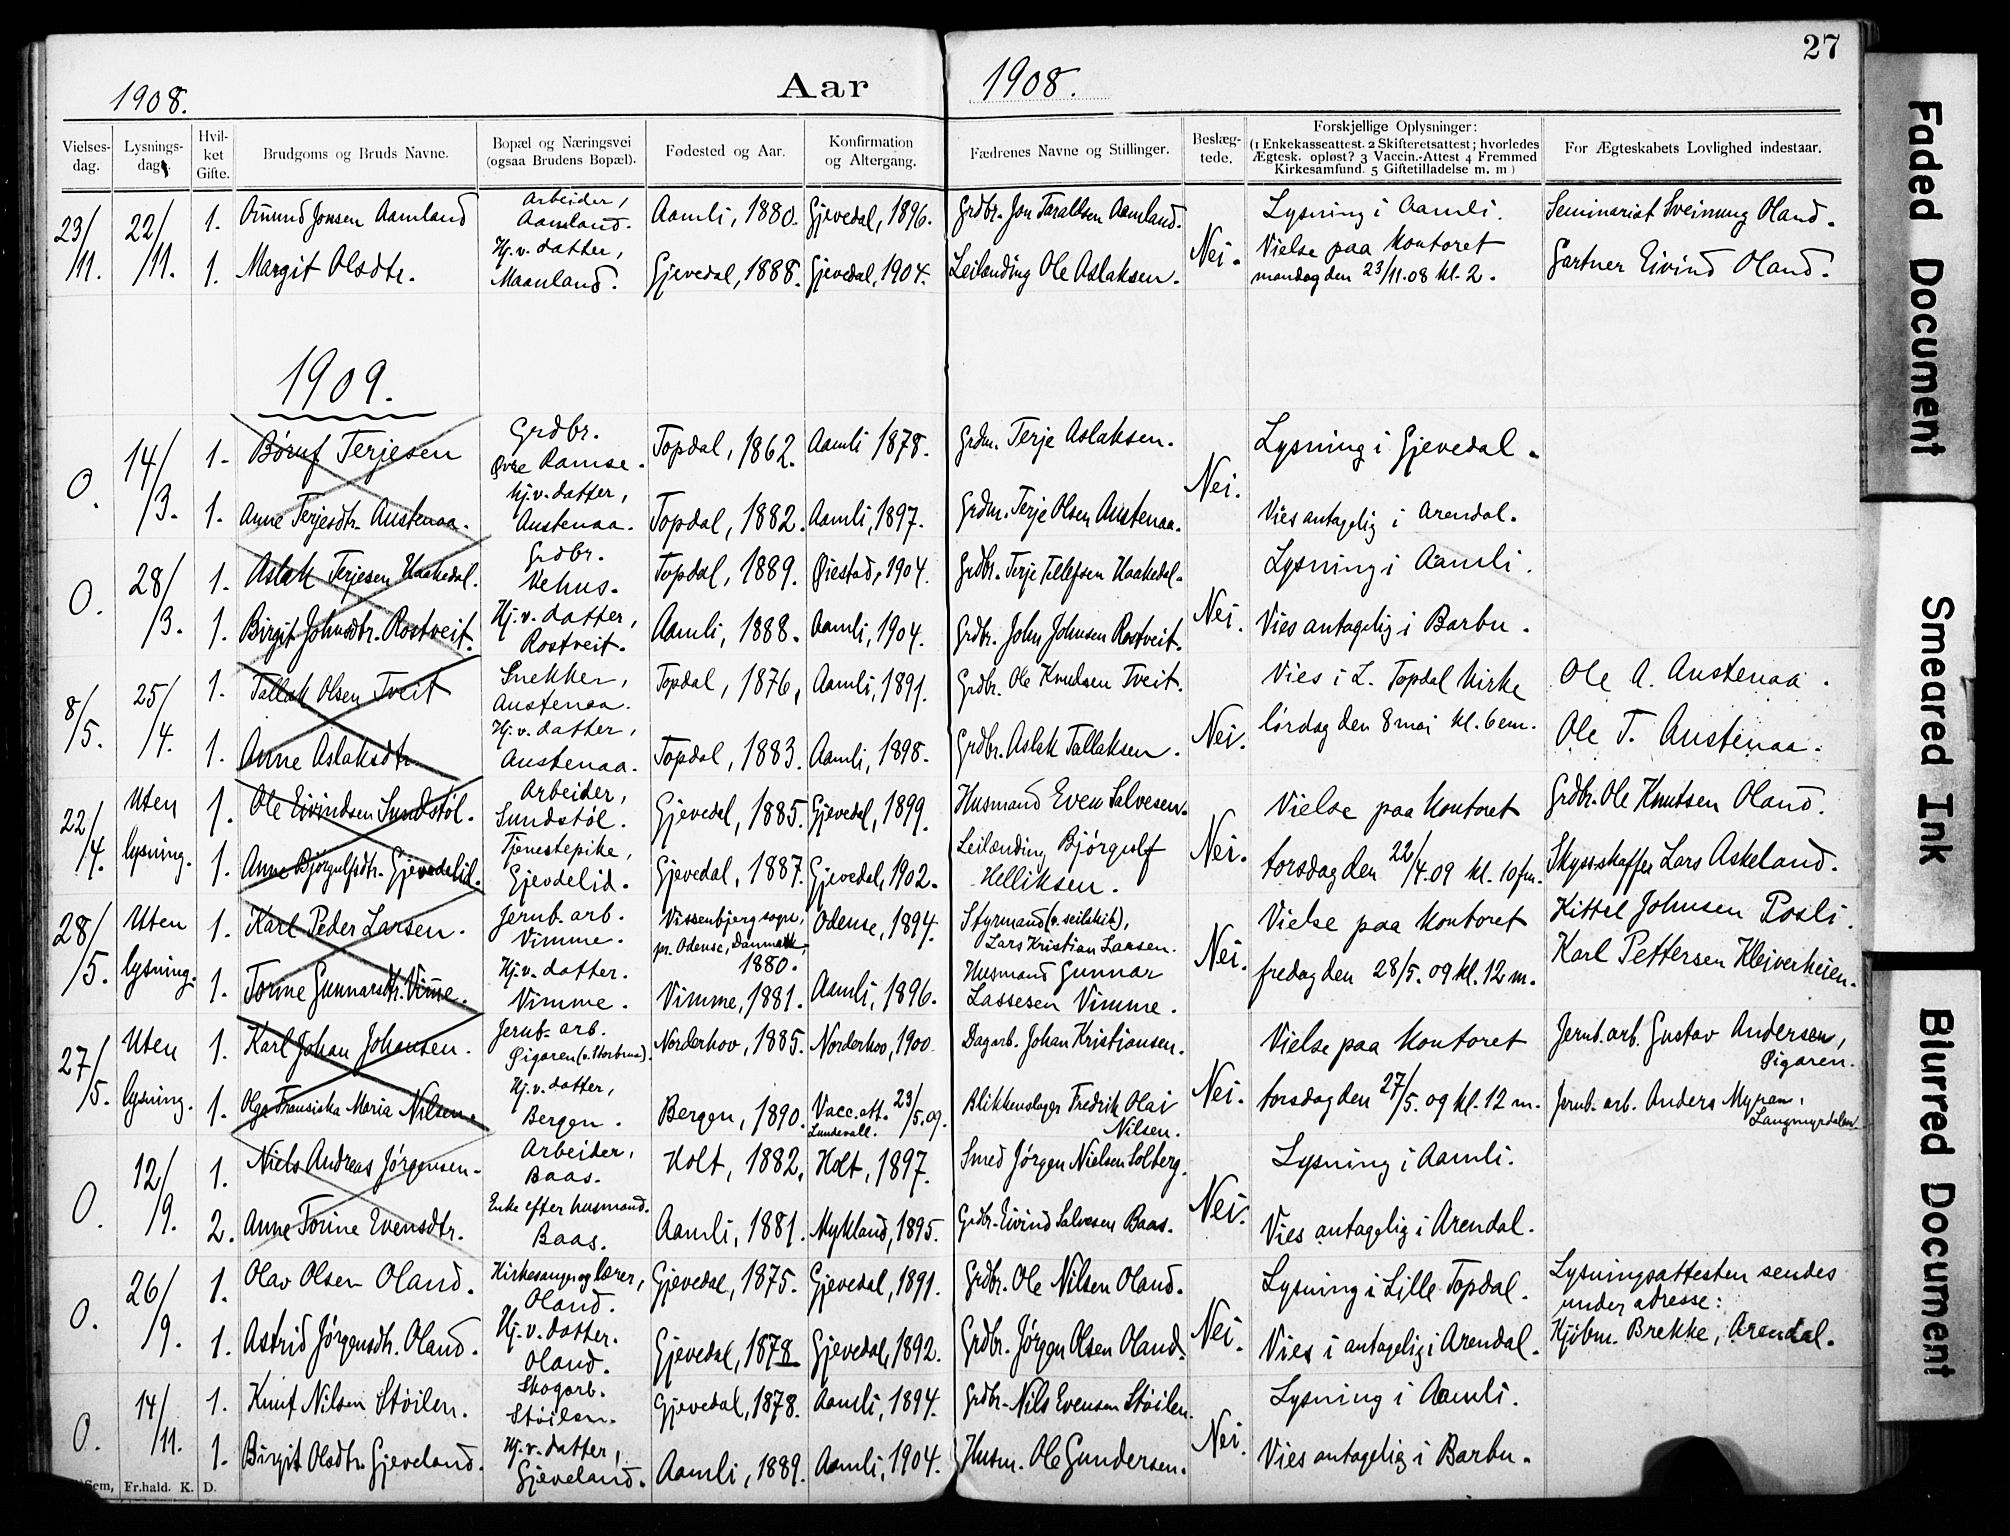 27
1908. Aar 1908.
Vielses-dag. Lysnings-dag. Hvil-ket Gifte. Brudgoms og Bruds Navne. Bopæl og Næringsvei (ogsaa Brudens Bopæl). Fødested og Aar. Konfirmation og Altergang. Fædrenes Navne og Stillinger. Beslæg-tede. Forskjellige Oplysninger: (1 Enkekasseattest. 2 Skifteretsattest; hvorledes Ægtesk. opløst? 3 Vaccin.-Attest 4 Fremmed Kirkesamfund. 5 Giftetilladelse m. m) For Ægteskabets Lovlighed indestaar.
23/11. 22/11. 1. Aamund Jonsen Aamland Arbeider, Aamland. Aamli, 1880. Gjevedal, 1896. Grdbr. Jon Taraldsen Aamland. Nei. Lysning i Aamli. Seminarist Sveinung Oland.
1. Margit Olsdtr. Hj.v. datter, Maanland. Gjevedal, 1888. Gjevedal, 1904. Leilænding Ole Aslaksen. Vielse paa kontoret mandag den 23/11.08 kl. 2. Gartner Eivind Oland.
1909.
0. 14/3. 1. Børuf Terjesen Grdbr. Øvre Ramse. Topdal, 1862. Aamli 1878. Grdm. Terje Aslaksen. Nei. Lysning i Gjevedal.
1. Anne Terjesdtr. Austenaa. Hj.v. datter, Austenaa. Topdal, 1882. Aamli, 1897. Grdm. Terje Olsen Austenaa. Vies antagelig i Arendal.
0. 28/3. 1. Aslak Terjesen Haakedal. Grdbr. Vehus. Topdal, 1889. Øiestad, 1904. Grdbr. Terje Tellefsen Haakedal. Nei. Lysning i Aamli.
1. Birgit Johnsdtr. Rostveit. Hj.v. datter, Rostveit. Aamli, 1888. Aamli, 1904. Grdbr. John Johnsen Rostveit. Vies antagelig i Barbu.
8/5. 25/4. 1. Tallak Olsen Tveit Snekker, Austenaa. Topdal, 1876, Aamli, 1891. Grdbr. Ole Knudsen Tveit. Nei. Vies i L. Topdal kirke Ole A. Austenaa.
1. Anne Aslaksdtr. Hj.v. datter, Austenaa. Topdal, 1883. Aamli, 1898. Grdbr. Aslak Tallaksen. lørdag den 8 mai kl. 6 em. Ole T. Austenaa.
22/4. Uten lysning. 1. Ole Eivindsen Sundstøl. Arbeider, Sundstøl. Gjevedal, 1885. Gjevedal, 1899. Husmand Even Salvesen. Nei. Vielse paa kontoret Grdbr. Ole Knutsen Oland.
1. Anne Bjørgulfsdtr. Gjevdelid. Tjenestepike, Gjevdelid. Gjevedal, 1887. Gjevedal, 1902. Leilænding Bjørgulf Helliksen. torsdag den 22/4.09 kl. 10 fm. Skysskaffer Lars Askeland.
28/5. Uten lysning. 1. Karl Peder Larsen. Jernb. arb. Vimme. Vissenbjerg sogn, pr. Odense, Danmark, 1880. Odense, 1894. Styrmand (v. seilskib), Lars Kristian Larsen. Nei. Vielse paa kontoret Kittel Johnsen Posli.
1. Torine Gunnarsdtr. Vimme. Hj.v. datter. Vimme. Vimme, 1881. Aamli, 1896. Husmand Gunnar Lassesen Vimme. fredag den 28/5.09 kl. 12 m. Karl Pettersen Kleiverheien.
27/5. Uten lysning. 1. Karl Johan Johansen. Jernb. arb. Øigaren (v. Storbrua). Norderhov, 1885. Norderhov, 1900. Dagarb. Johan Kristiansen. Nei. Vielse paa kontoret Jernb. arb. Gustav Andersen, Øigaren.
1. Olga Fransiska Maria Nilsen. Hj.v. datter, Bergen. Bergen, 1890. Vacc. att. 23/5.09. Lundevall. Blikkenslager Fredrik Olai Nilsen. torsdag den 27/5.09 kl. 12 m. Jernb. arb. Anders Myran, Langmyrdalen.
0. 12/9. 1. Niels Andreas Jørgensen. Arbeider, Baas. Holt, 1882, Holt, 1897. Smed Jørgen Nielsen Solberg. Nei. Lysning i Aamli.
2. Anne Torine Evensdtr. Enke efter husmand. Baas. Aamli, 1881. Mykland, 1895. Grdbr. Eivind Salvesen Baas. Vies antagelig i Arendal.
0. 26/9. 1. Olav Olsen Oland. Kirkesanger og lærer, Oland. Gjevedal, 1875. Gjevedal, 1891. Grdbr. Ole Nilsen Oland. Nei. Lysning i Lille Topdal. Lysningsattesten sendes under adresse:
1. Astrid Jørgensdtr. Oland. Hj.v. datter. Oland. Gjevedal, 1878 Gjevedal, 1892. Grdbr. Jørgen Olsen Oland. Vies i antagelig i Arendal. Kjøbm. Brekke, Arendal.
0. 14/11. 1. Knut Nilsen Støilen. Skogarb. Støilen. Gjevedal, 1878. Aamli, 1894. Grdbr. Nils Evensen Støilen. Nei. Lysning i Aamli.
1. Birgit Olsdtr. Gjeveland. Hj.v. datter, Gjeveland. Aamli, 1889. Aamli, 1904. Husm. Ole Gundersen. Vies antagelig i Barbu.
Sem, Fr.hald. K. D.
Faded Document
Smeared Ink
Blurred Document